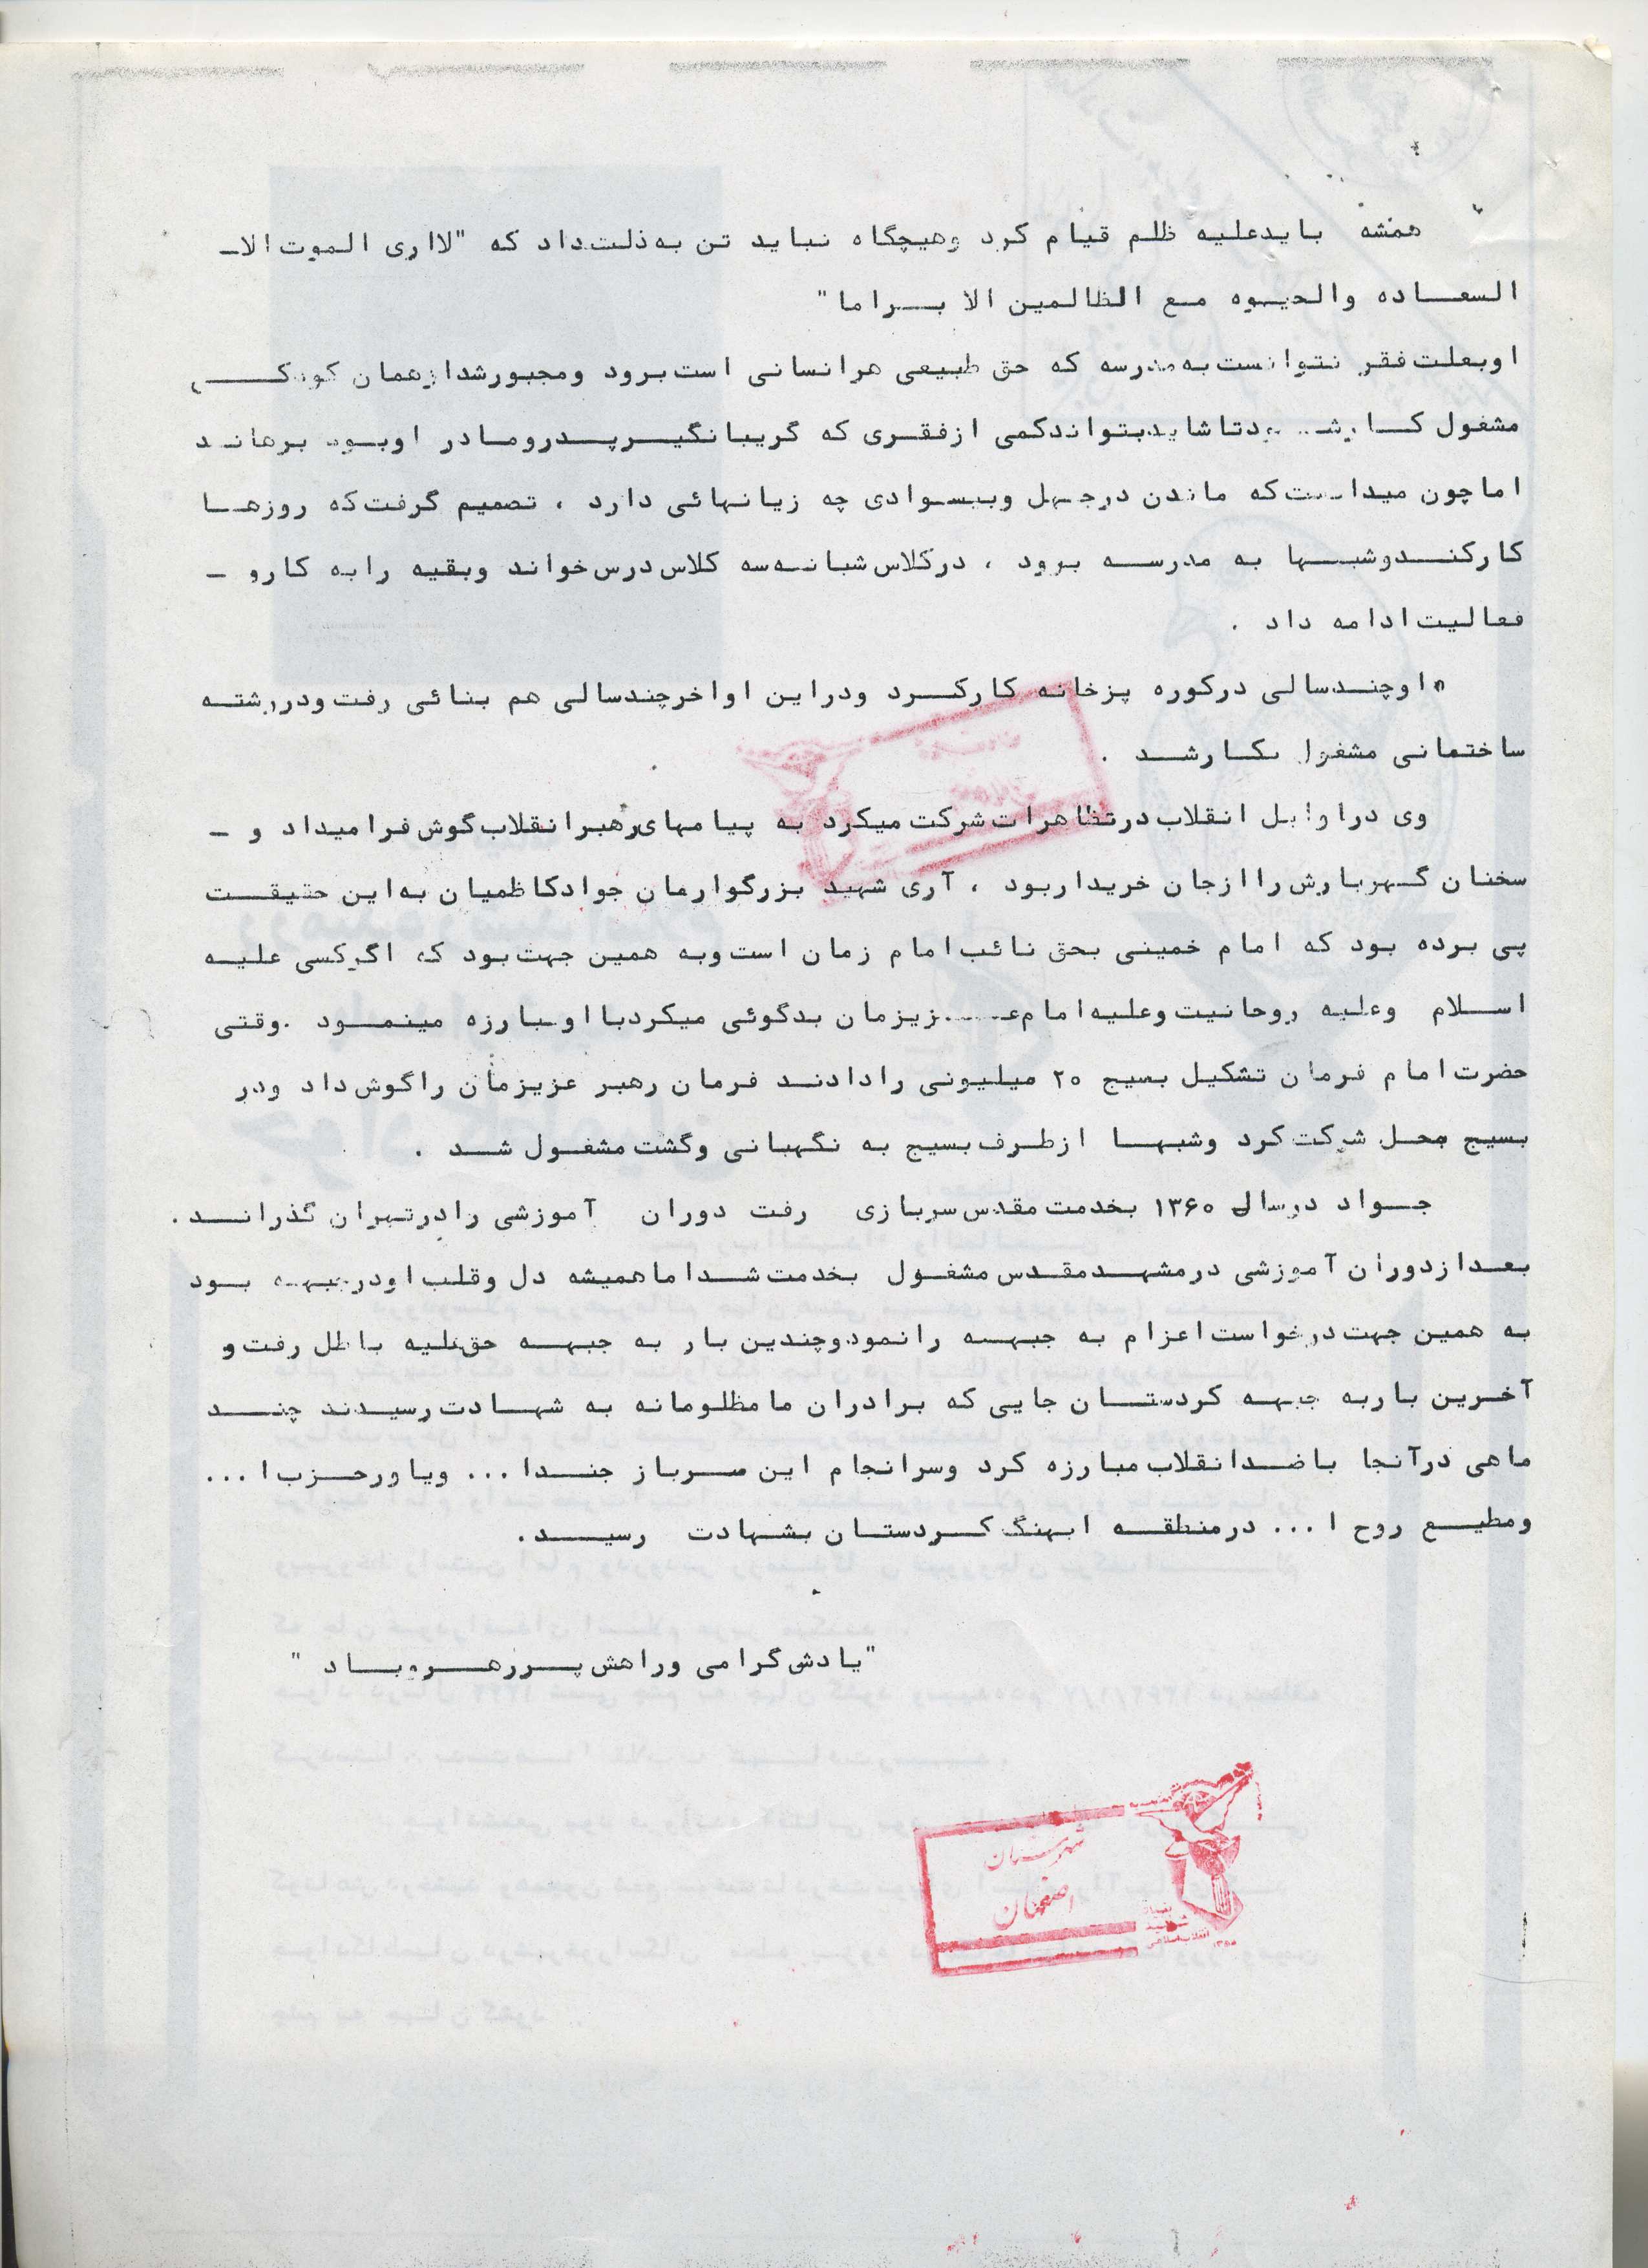 همشه بایدعلیه ظلم قیام کرد وهیچگاه نباید تن به‌ذلت‌داد که "لااری الموت الا-
السعاده والحیوه مع الظالمین الا براما"
اوبعلت فقر نتوانست به‌مدرسه که حق طبیعی هرانسانی است برود ومجبورشدازهمان کودکی
مشغول کارشودتاشایدبتواندکمی ازفقری که گریبانگیرپدرومادر اوبود برهاند
اماچون میدانست‌که ماندن درجهل وبیسوادی چه زیانهائی دارد ، تصمیم گرفت‌که روزها
کارکندوشبها به مدرسه برود ، درکلاس شبانه‌سه کلاس‌درس‌خواند وبقیه رابه کارو -
فعالیت ادامه داد .
اوچندسالی درکوره پزخانه کارکرد ودراین اواخرچندسالی هم بنائی رفت ودررشته
ساختمانی مشغول بکارشد .
وی دراوایل انقلاب درتظاهرات شرکت میکرد به پیامهای‌رهبرانقلاب گوش فرامیداد و -
سخنان گهربارش راازجان خریداربود ، آری شهید بزرگوارمان جوادکاظمیان به‌این حقیقت
پی برده بود که امام خمینی بحق نائب امام زمان است وبه همین جهت بود که اگرکسی علیه
اسلام وعلیه روحانیت وعلیه امام‌عزیزمان بدگوئی میکردبااومبارزه مینمود .وقتی
حضرت امام فرمان تشکیل بسیج ۲۰ میلیونی رادادند فرمان رهبر عزیزمان راگوش‌داد ودر
بسیج محل شرکت کرد وشبها ازطرف بسیج به نگهبانی وگشت مشغول شد .
جواد درسال ۱۳۶۰ بخدمت مقدس سربازی رفت دوران آموزشی رادرتهران گذراند.
بعدازدوران آموزشی درمشهدمقدس مشغول بخدمت شداماهمیشه دل وقلب اودرجبهه بود
به همین جهت درخواست اعزام به جبهه رانمودوچندین بار به جبهه حق‌علیه باطل رفت و
آخرین باربه جبهه کردستان جایی که برادران مامظلومانه به شهادت رسیدند چند
ماهی درآنجا باضدانقلاب مبارزه کرد وسرانجام این سرباز جندا... ویاورحزب ا...
ومطیع روح ا... درمنطقه ابهنگ کردستان بشهادت رسید.
"یادش گرامی وراهش پررهروباد "
شهرستان
اصفهان